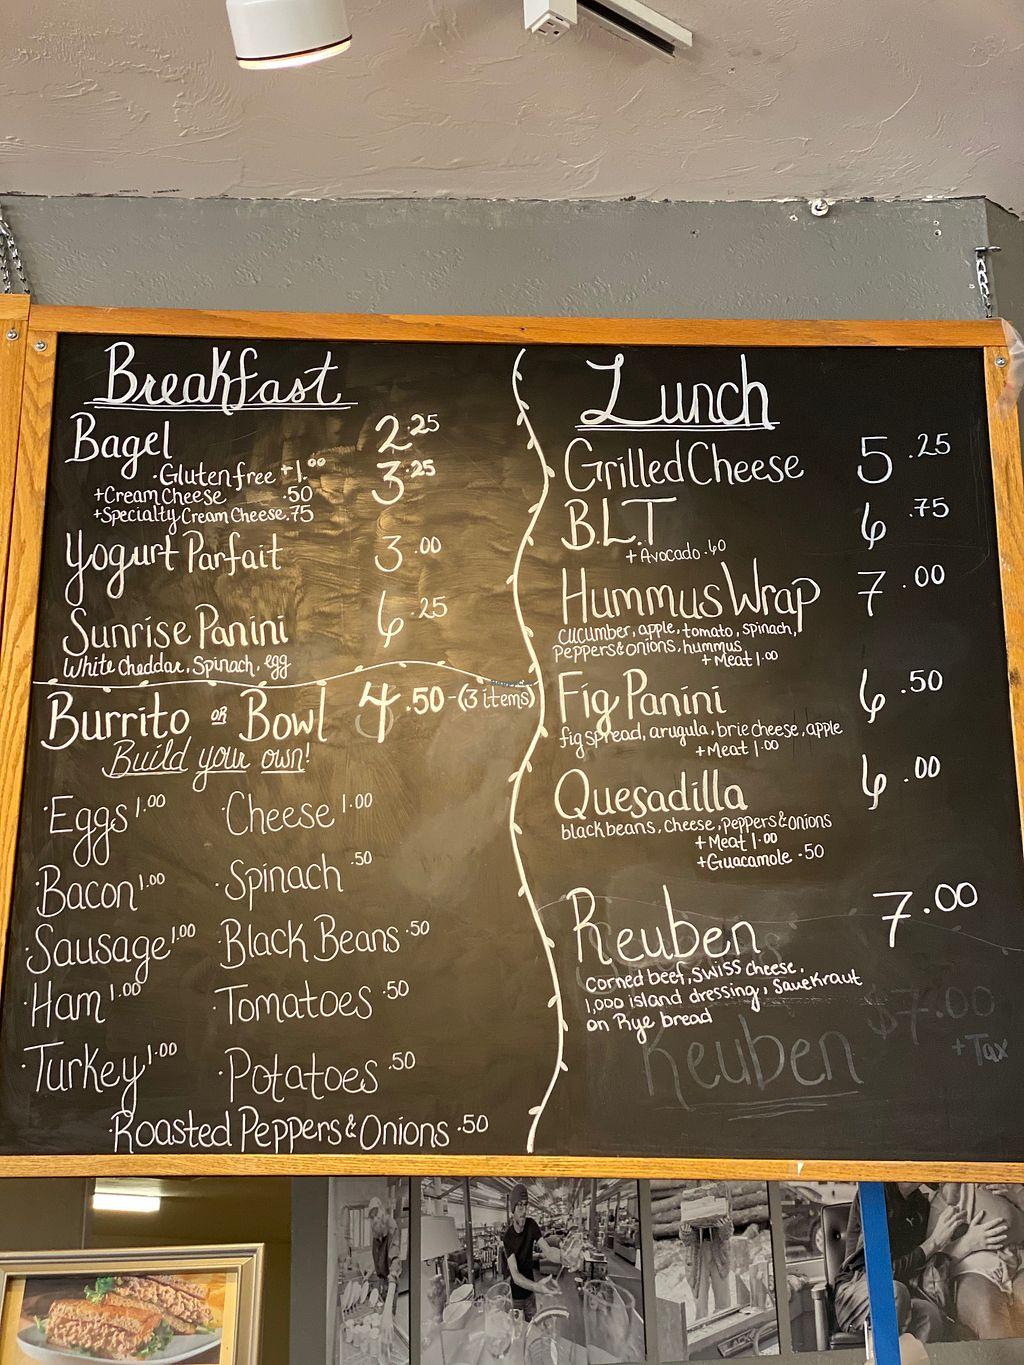 Breakfast
Bagel 2.25
·Gluten free +1.00 3.25
+Cream Cheese .50
+Specialty Cream Cheese .75
Yogurt Parfait 3.00
Sunrise Panini 6.25
White Cheddar, Spinach, egg
Burrito OR Bowl 4.50-(3 items)
Build your own!
·Eggs 1.00 ·Cheese 1.00
·Bacon 1.00 ·Spinach .50
·Sausage 1.00 ·Black Beans .50
·Ham 1.00 ·Tomatoes .50
·Turkey 1.00 ·Potatoes .50
·Roasted Peppers & Onions .50
Lunch
Grilled Cheese 5.25
B.L.T 6.75
+ Avocado .60
Hummus Wrap 7.00
cucumber, apple, tomato, spinach,
Peppers & onions, hummus
+ Meat 1.00
Fig Panini 6.50
fig spread, arugula, brie cheese, apple
+ Meat 1.00
Quesadilla 6.00
black beans, cheese, peppers & onions
+ Meat 1.00
+Guacamole .50
Reuben 7.00
Corned beef, Swiss cheese,
1,000 island dressing, Sauekraut
on Rye bread
$7.00
Reuben + Tax